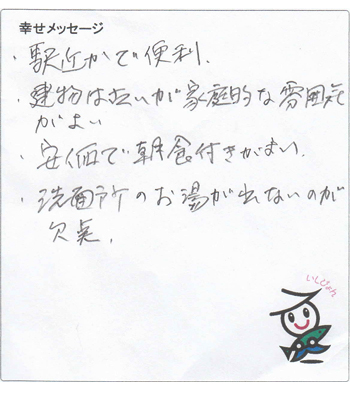 幸せメッセージ
・駅近かで便利.
・建物は古いが家庭的な雰囲気
がよい
・安価で朝食付きがよい.
・洗面所のお湯が出ないのが
欠点.
いしぴょん